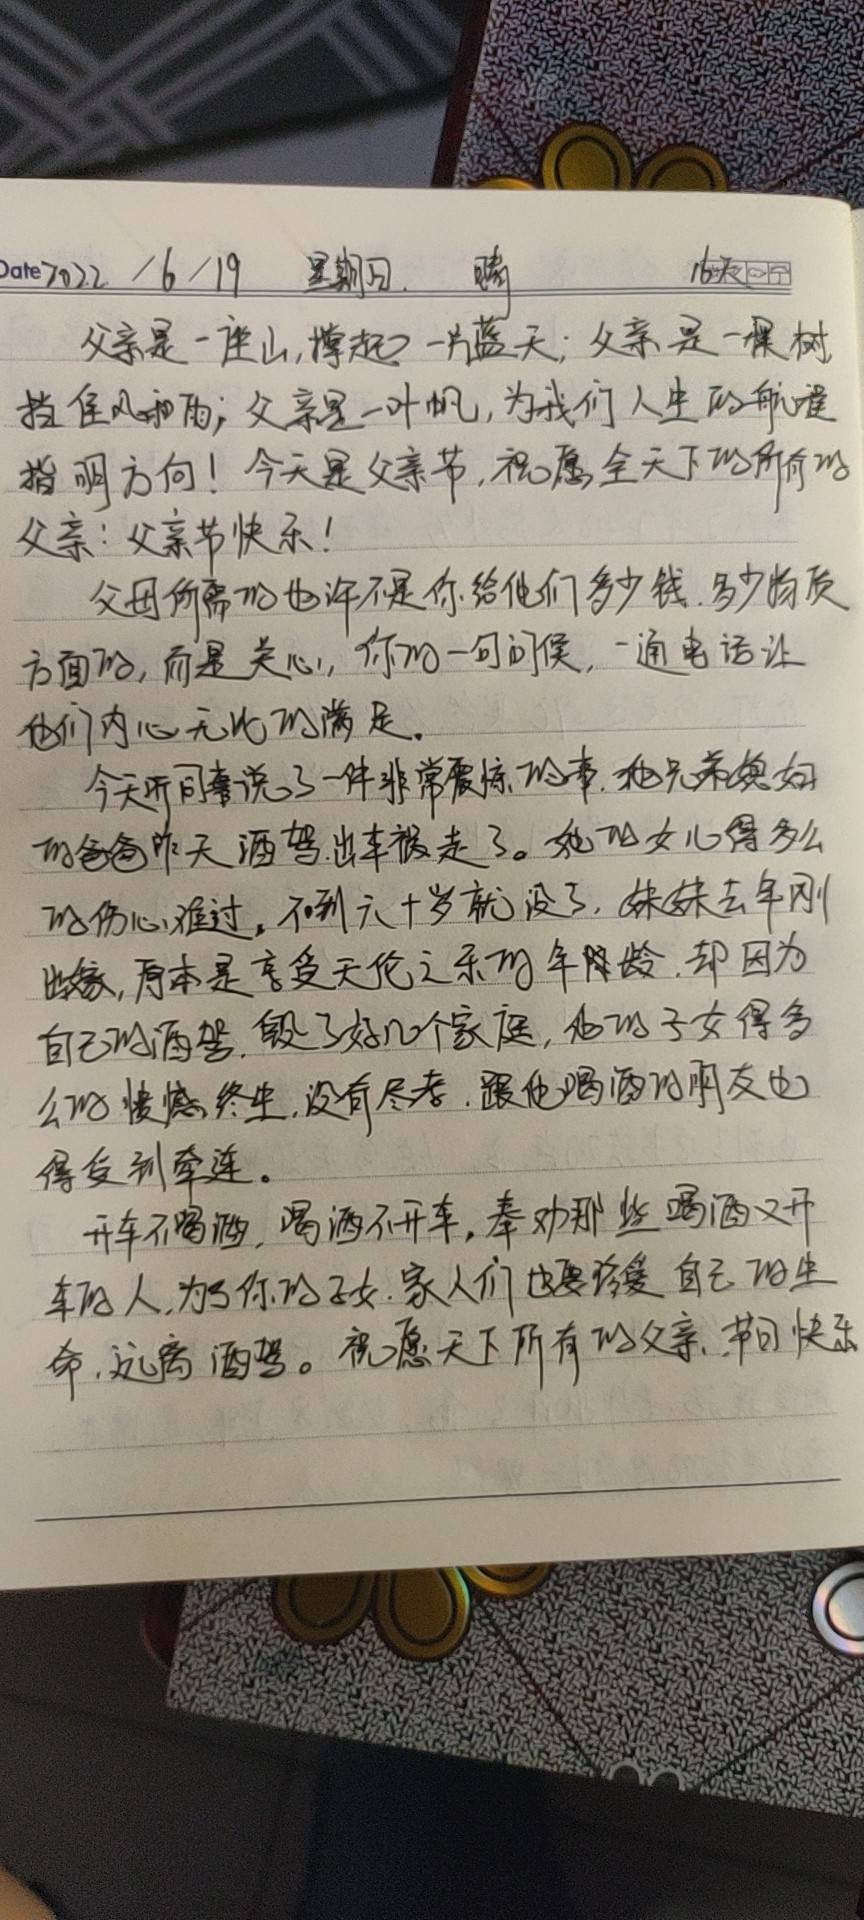 Date 2022 / 6 / 19 星期日. 晴 16天
父亲是一座山,撑起一片蓝天;父亲是一棵树
挡住风和雨;父亲是一叶帆,为我们人生的航程
指明方向!今天是父亲节,祝愿全天下的所有的
父亲:父亲节快乐!
父母所需的也许不是你给他们多少钱.多少物质
方面的,而是关心,你的一句问候,一通电话让
他们内心无比的满足。
今天听同事说了一件非常震惊的事.她兄弟媳妇
的爸爸昨天酒驾出车祸走了。她的女儿得多么
的伤心难过。不到六十岁就没了,妹妹去年刚
出嫁,原本是享受天伦之乐的年龄.却因为
自己的酒驾.毁了好几个家庭,他的子女得多
么的憾终生.没有尽孝.跟他喝酒的朋友也
得受到牵连。
开车不喝酒,喝酒不开车,奉劝那些喝酒又开
车的人,为了你的子女.家人们也要珍爱自己的生
命.远离酒驾。祝愿天下所有的父亲.节日快乐